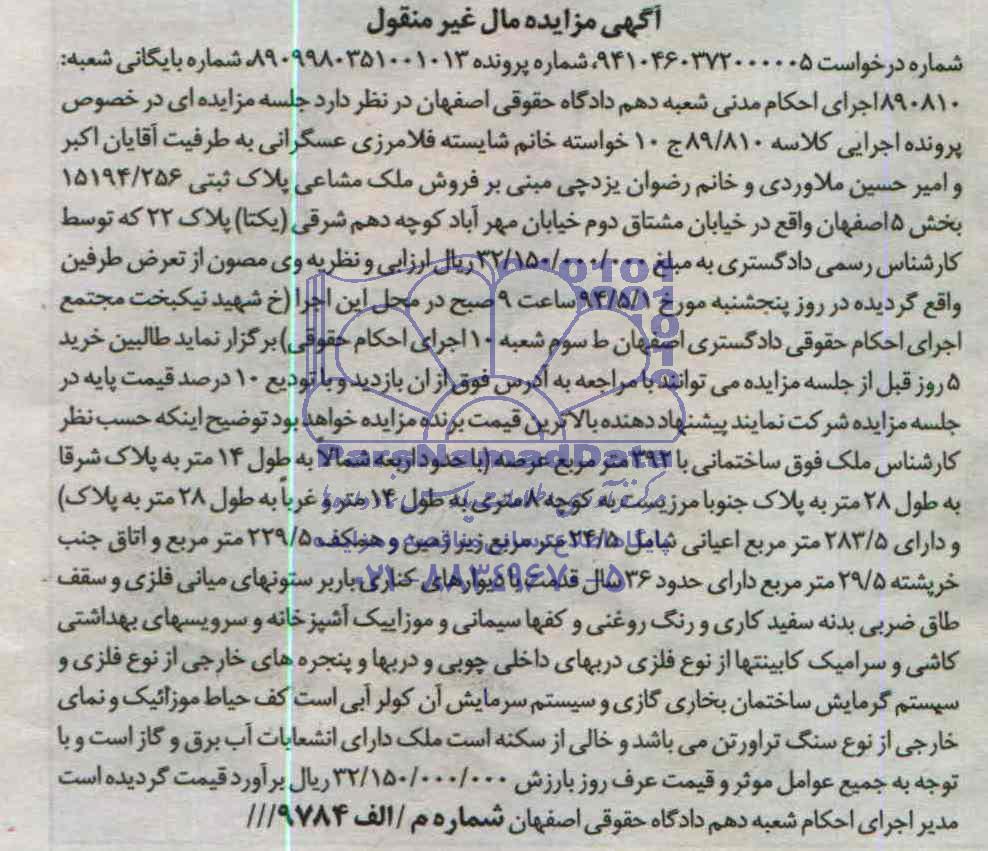 آگهی مزایده مال غیر منقول
شماره درخواست ۹۴۱۰۴۶۰۳۷۲۰۰۰۰۰۵، شماره پرونده ۸۹۰۹۹۸۰۳۵۱۰۰۱۰۱۳، شماره بایگانی شعبه:
۸۹۰۸۱۰ اجرای احکام مدنی شعبه دهم دادگاه حقوقی اصفهان در نظر دارد جلسه مزایده ای در خصوص
پرونده اجرایی کلاسه ۸۹/۸۱۰ ج ۱۰ خواسته خانم شایسته فلامرزی عسگرانی به طرفیت آقایان اکبر
و امیر حسین ملاوردی و خانم رضوان یزدچی مبنی بر فروش ملک مشاعی پلاک ثبتی ۱۵۱۹۴/۲۵۶
بخش ۵ اصفهان واقع در خیابان مشتاق دوم خیابان مهر آباد کوچه دهم شرقی (یکتا) پلاک ۲۲ که توسط
کارشناس رسمی دادگستری به مبلغ ۳۲/۱۵۰/۰۰۰/۰۰۰ ریال ارزیابی و نظریه وی مصون از تعرض طرفین
واقع گردیده در روز پنجشنبه مورخ ۹۴/۵/۱ ساعت ۹ صبح در محل این اجرا (خ شهید نیکبخت مجتمع
اجرای احکام حقوقی دادگستری اصفهان ط سوم شعبه ۱۰ اجرای احکام حقوقی) برگزار نماید طالبین خرید
۵ روز قبل از جلسه مزایده می توانند با مراجعه به آدرس فوق از ان بازدید و با تودیع ۱۰ درصد قیمت پایه در
جلسه مزایده شرکت نمایند پیشنهاد دهنده بالاترین قیمت برنده مزایده خواهد بود توضیح اینکه حسب نظر
کارشناس ملک فوق ساختمانی با ۳۹۲ متر مربع عرصه (با حدود اربعه شمالاً به طول ۱۴ متر به پلاک شرقا
به طول ۲۸ متر به پلاک جنوبا مرزیست به کوچه ۸ متری به طول ۱۴ متر و غرباً به طول ۲۸ متر به پلاک)
و دارای ۲۸۳/۵ متر مربع اعیانی شامل ۲۴/۵ متر مربع زیر زمین و همکف ۲۲۹/۵ متر مربع و اتاق جنب
خرپشته ۲۹/۵ متر مربع دارای حدود ۳۶ سال قدمت با دیوارهای کناری باربر ستونهای میانی فلزی و سقف
طاق ضربی بدنه سفید کاری و رنگ روغنی و کفها سیمانی و موزاییک آشپزخانه و سرویسهای بهداشتی
کاشی و سرامیک کابینتها از نوع فلزی دربهای داخلی چوبی و دربها و پنجره های خارجی از نوع فلزی و
سیستم گرمایش ساختمان بخاری گازی و سیستم سرمایش آن کولر آبی است کف حیاط موزائیک و نمای
خارجی از نوع سنگ تراورتن می باشد و خالی از سکنه است ملک دارای انشعابات آب برق و گاز است و با
توجه به جمیع عوامل موثر و قیمت عرف روز بارزش ۳۲/۱۵۰/۰۰۰/۰۰۰ ریال برآورد قیمت گردیده است
مدیر اجرای احکام شعبه دهم دادگاه حقوقی اصفهان شماره م /الف ۹۷۸۴///
ParsNamadData
۰۲۱-۸۸۳۴۹۶۷۰-۵